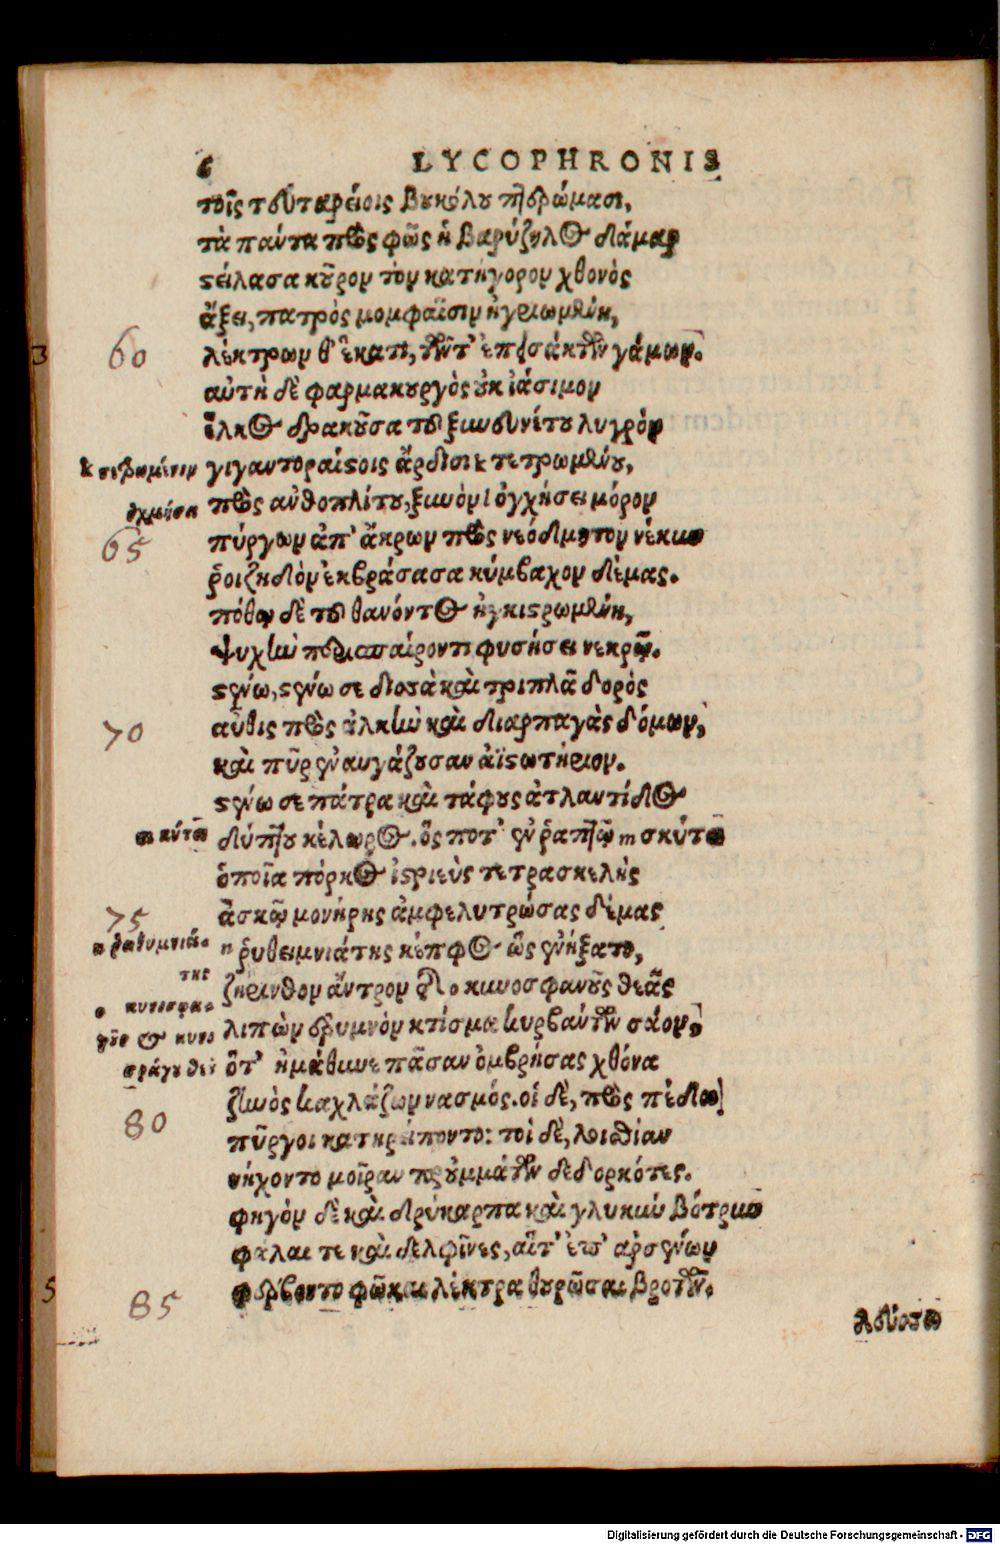 6 LYCOPHRONIS
τοῖς τευταρείοις βουκόλου πτερώμασι,
τὰ πάντα πρὸς φῶς ἡ βαρύζηλος δάμαρ
στείλασα κοῦρον τὸν κατήγορον χθονὸς
ἄξει, πατρὸς μομφαῖσιν ἠγριωμένη,
60 λέκτρων θ' ἕκατι, τῶντ' ἐπεισάκτων γάμων.
αὐτὴ δὲ φαρμακουργὸς οὐκ ἰάσιμον
ἕλκος δρακοῦσα τοῦ ξυνευνέτου λυγρὸν
γιγαντοραίστοις ἄρδισι k τετρωμένου,
πρὸς ἀνθοπλίτου, ξυνὸν l ὀγχήσει μόρον
65 πύργων ἀπ' ἄκρων πρὸς νεόδμητον νέκυν
ῥοιζηδὸν ἐκβράσασα κύμβαχον δέμας.
πόθῳ δὲ τοῦ θανόντος ἠγκιστρωμένη,
ψυχὴν περισπαίροντι φυσήσει νεκρῷ.
στένω, στένω σε δισσὰ καὶ τριπλᾶ δορὸς
70 αὖθις πρὸς ἀλκὴν καὶ διαρπαγὰς δόμων,
καὶ πῦρ ἐναυγάζουσαν ἀϊστωτήριον.
στένω σε πάτρα καὶ τάφους ἀτλαντίδος
δύπτου κέλωρος. ὅς ποτ' ἐν ῥαπτῷ m σκύτει
ὁποῖα πόρκος ἰστριεὺς τετρασκελὴς
75 ἀσκῷ μονήρης ἀμφελυτρώσας δέμας
n ῥυθειμνιάτης κέπφος ὣς ἐνήξατο,
ζήρινθον ἄντρον τῆς ο κυνοσφαγοῦς θεᾶς
λιπὼν ἐρυμνὸν κτίσμα κυρβάντων σάον,
ὅτ' ἠμάθυνε πᾶσαν ὀμβρήσας χθόνα
80 ζηνὸς καχλάζων νασμός. οἱ δὲ, πρὸς πέδῳ
πῦργοι κατηρείποντο: τοὶ δὲ, λοισθίαν
νήχοντο μοῖραν προὐμμάτων δεδορκότες.
φηγὸν δὲ καὶ δρύκαρπα καὶ γλυκὺν βότρυν
φάλαι τε καὶ δελφῖνες, αἵτ' ἐπ' ἀρσένων
85 φέρβοντο φῶκαι λέκτρα θουρῶσαι βροτῶν.
λεύσσω
Digitalisierung gefördert durch die Deutsche Forschungsgemeinschaft - DFG